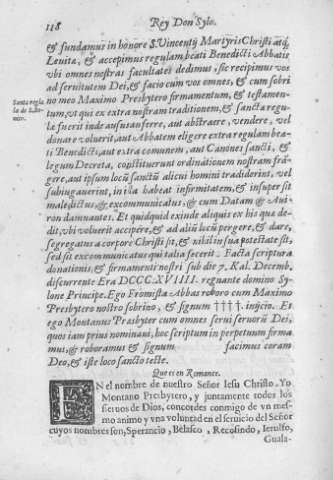 118
Rey Don Sylo.
& fundamus in honore S. Vincentij Martyris Christi atq;
Leuita, & accepimus regulam beati Benedicti Abbatis
vbi omnes nostras facultates dedimus, sic recipimus vos
ad seruitutem Dei, & facio cum vos omnes, & cum sobri
no meo Maximo Presbytero firmamentum, & testamen-
Santa regla
la de S. Be-
nito.
tum, vt qui ex extra nostram traditionem, & sancta regu-
la fuerit inde ausus anferre, aut abstraere, vendere, vel
donare voluerit, aut Abbatem eligere extra regulam bea-
ti Benedicti, aut extra comunem, aut Canonei sancti, &
legum Decreta, constituerunt ordinationem nostram frã-
gere, aut ipsum locũ sanctũ alicui homini tradiderint, vel
subiugauerint, in illa habeat infirmitatem, & insuper sit
maledictus, & excommunicatus, & cum Datam & Aui-
ron damnantes. Et quidquid exinde aliquis ex his quæ de-
dit, vbi voluerit accipere, & ad aliũ locũ pergere, & dare,
segregatus a corpore Christi sit, & nihil in sua potestate sit,
sed sit excommunicatus qui talia fecerit. Facta scriptura
donationis, & firmamenti nostri sub die 7. Kal. Decemb.
discurrente Era DCCC.XVIIII. regnante domino Sy-
lone Principe. Ego Fromista Abbas roboro cum Maximo
Presbytero nostro sobrino, & signum †††† inijcio. Et
ego Montanus Presbyter cum omnes serui seruorũ Dei,
quos iam prius nominaui, hoc scriptum in perpetuum firma
mus, & roboramus & signum facimus coram
Deo, & iste loco sancto teste.
Que es en Romance.
EN el nombre de nuestro Señor Iesu Christo. Yo
Montano Presbytero, y juntamente todos los
sieruos de Dios, concordes conmigo de vn mes-
mo animo y vna voluntad en el seruicio del Señor
cuyos nombres son, Sperancio, Belasco, Recosindo, Ierulfo,
Guala-